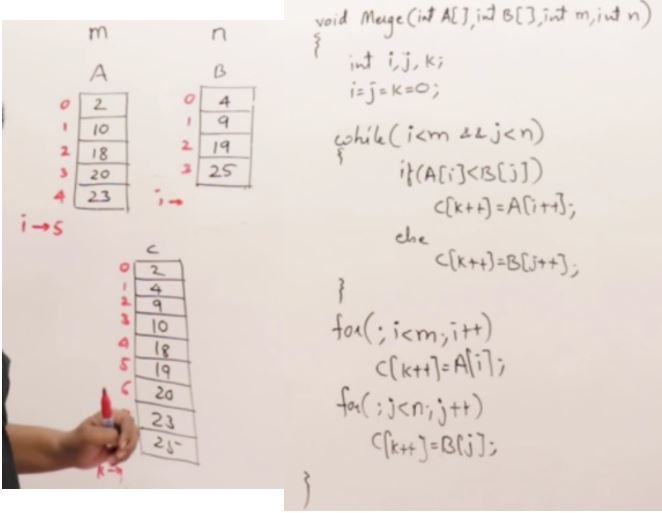 m n
A B
0 2
1 10
2 18
3 20
4 23
i→5
0 4
1 9
2 19
3 25
j→
C
0 2
1 4
2 9
3 10
4 18
5 19
6 20
23
25
k→
void Merge(int A[],int B[],int m,int n)
{
int i,j,k;
i=j=k=0;
while(i<m && j<n)
{
if(A[i]<B[j])
C[k++]=A[i++];
else
C[k++]=B[j++];
}
for(;i<m;i++)
C[k++]=A[i];
for(;j<n;j++)
C[k++]=B[j];
}